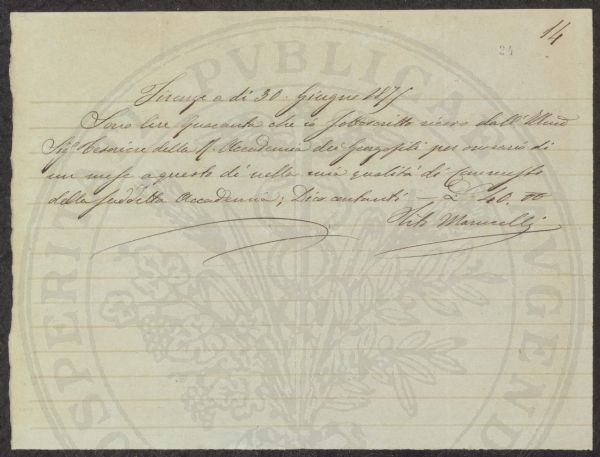 14
24
Firenze a dì 30. Giugno 1875
Sono lire Quaranta che io sottoscritto ricevo dall'Illmo
Sigr Tesoriere della R. Accademia dei Georgofili per onorario di
un mese a questo dì nella mia qualità di Commesso
della suddetta Accademia; Dico contanti — £ 40. 00
Vito Marucelli
PUBLICA
PROSPERIT
AUGENDAE